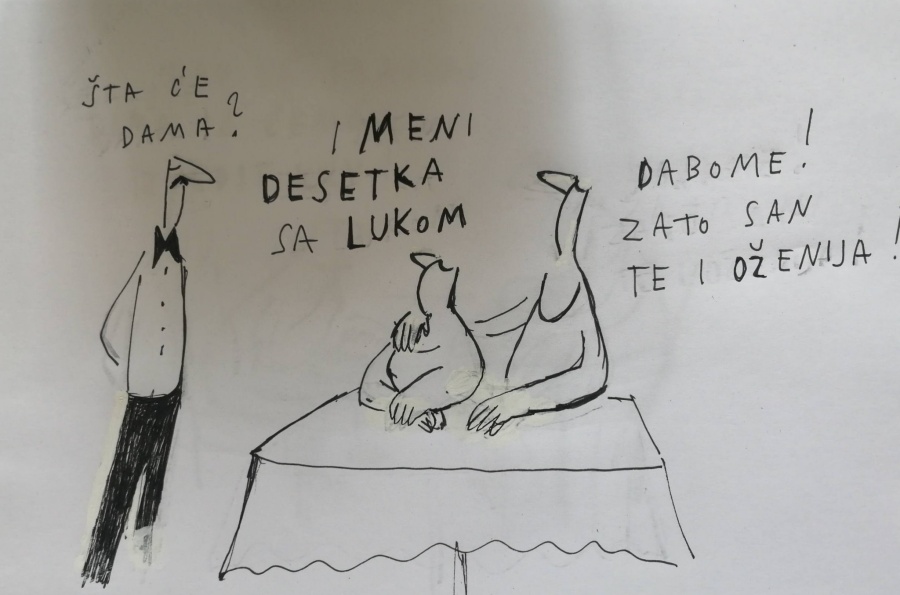 ŠTA ĆE
DAMA?
I MENI
DESETKA
SA LUKOM
DABOME!
ZATO SAN
TE I OŽENIJA!